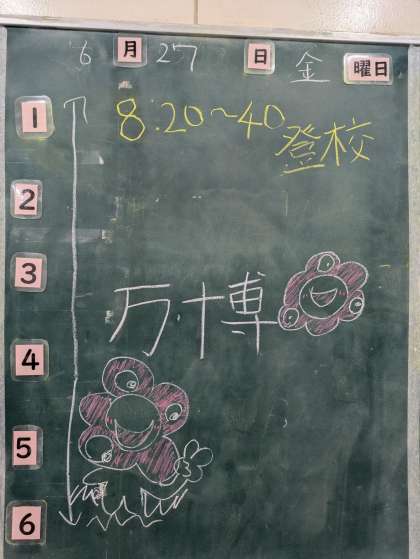 6月27日金曜日
1
8:20～40
登校
2
3
万博
4
5
6